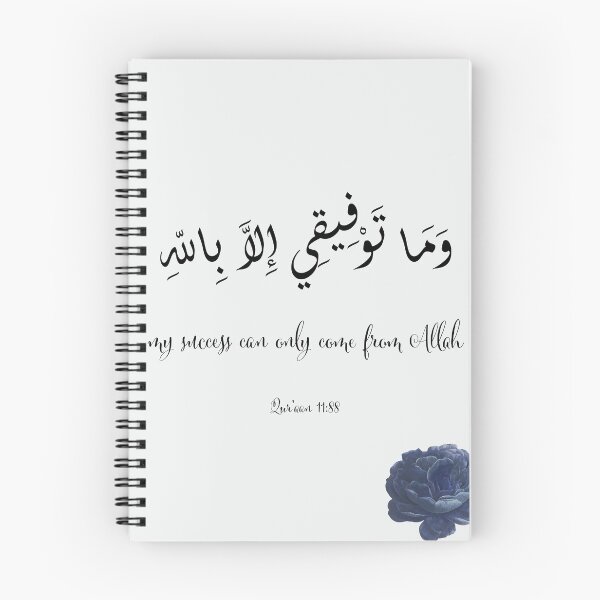 وَمَا تَوْفِيقِي إِلاَّ بِاللّهِ
my success can only come from Allah
Qur'aan 11:88